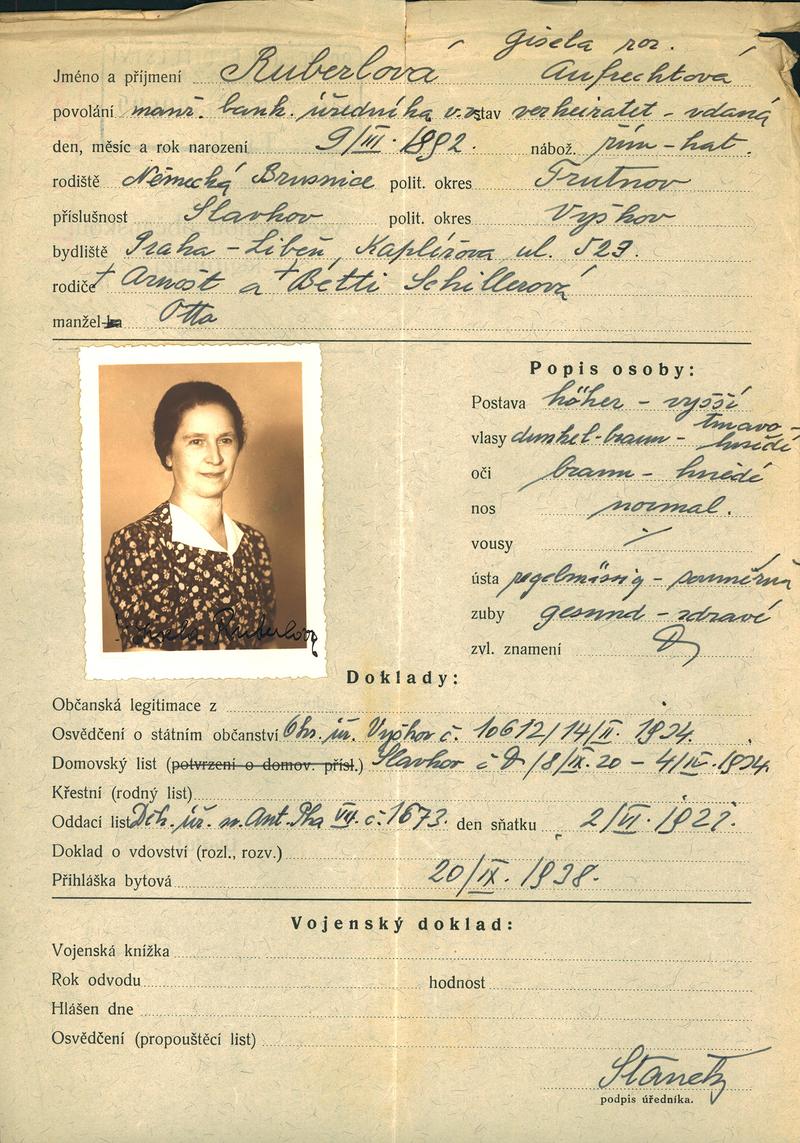 Gisela roz.
Jméno a příjmení Ruberlová Aufrechtová
povolání manž. bank. úředníka v.v. stav verheiratet - vdaná
den, měsíc a rok narození 9/III. 1892. nábož. řím-kat.
rodiště Německá Brusnice polit. okres Trutnov
příslušnost Slavkov polit. okres Vyškov
bydliště Praha - Libeň, Kaplířova ul. 529.
rodiče † Arnošt a † Betti Schillerová
manžel-ka Otto
Popis osoby:
Postava höher - vyšší
vlasy dunkel-braun - tmavo-hnědé
oči braun - hnědé
nos normal.
vousy
ústa regelmässig - souměrná
zuby gesund - zdravé
zvl. znamení
Gisela Ruberlová
Doklady:
Občanská legitimace z
Osvědčení o státním občanství Okr. úř. Vyškov č. 10612/14/II. 1934.
Domovský list (potvrzení o domov. přísl.) Slavkov č /8/IX. 20 - 4/IV. 1934.
Křestní (rodný list)
Oddací list Děk. úř. sv. Ant. Pha VII. č. 1673. den sňatku 2/VI. 1927.
Doklad o vdovství (rozl., rozv.)
Přihláška bytová 20/IX. 1938.
Vojenský doklad:
Vojenská knížka
Rok odvodu hodnost
Hlášen dne
Osvědčení (propouštěcí list)
podpis úředníka.